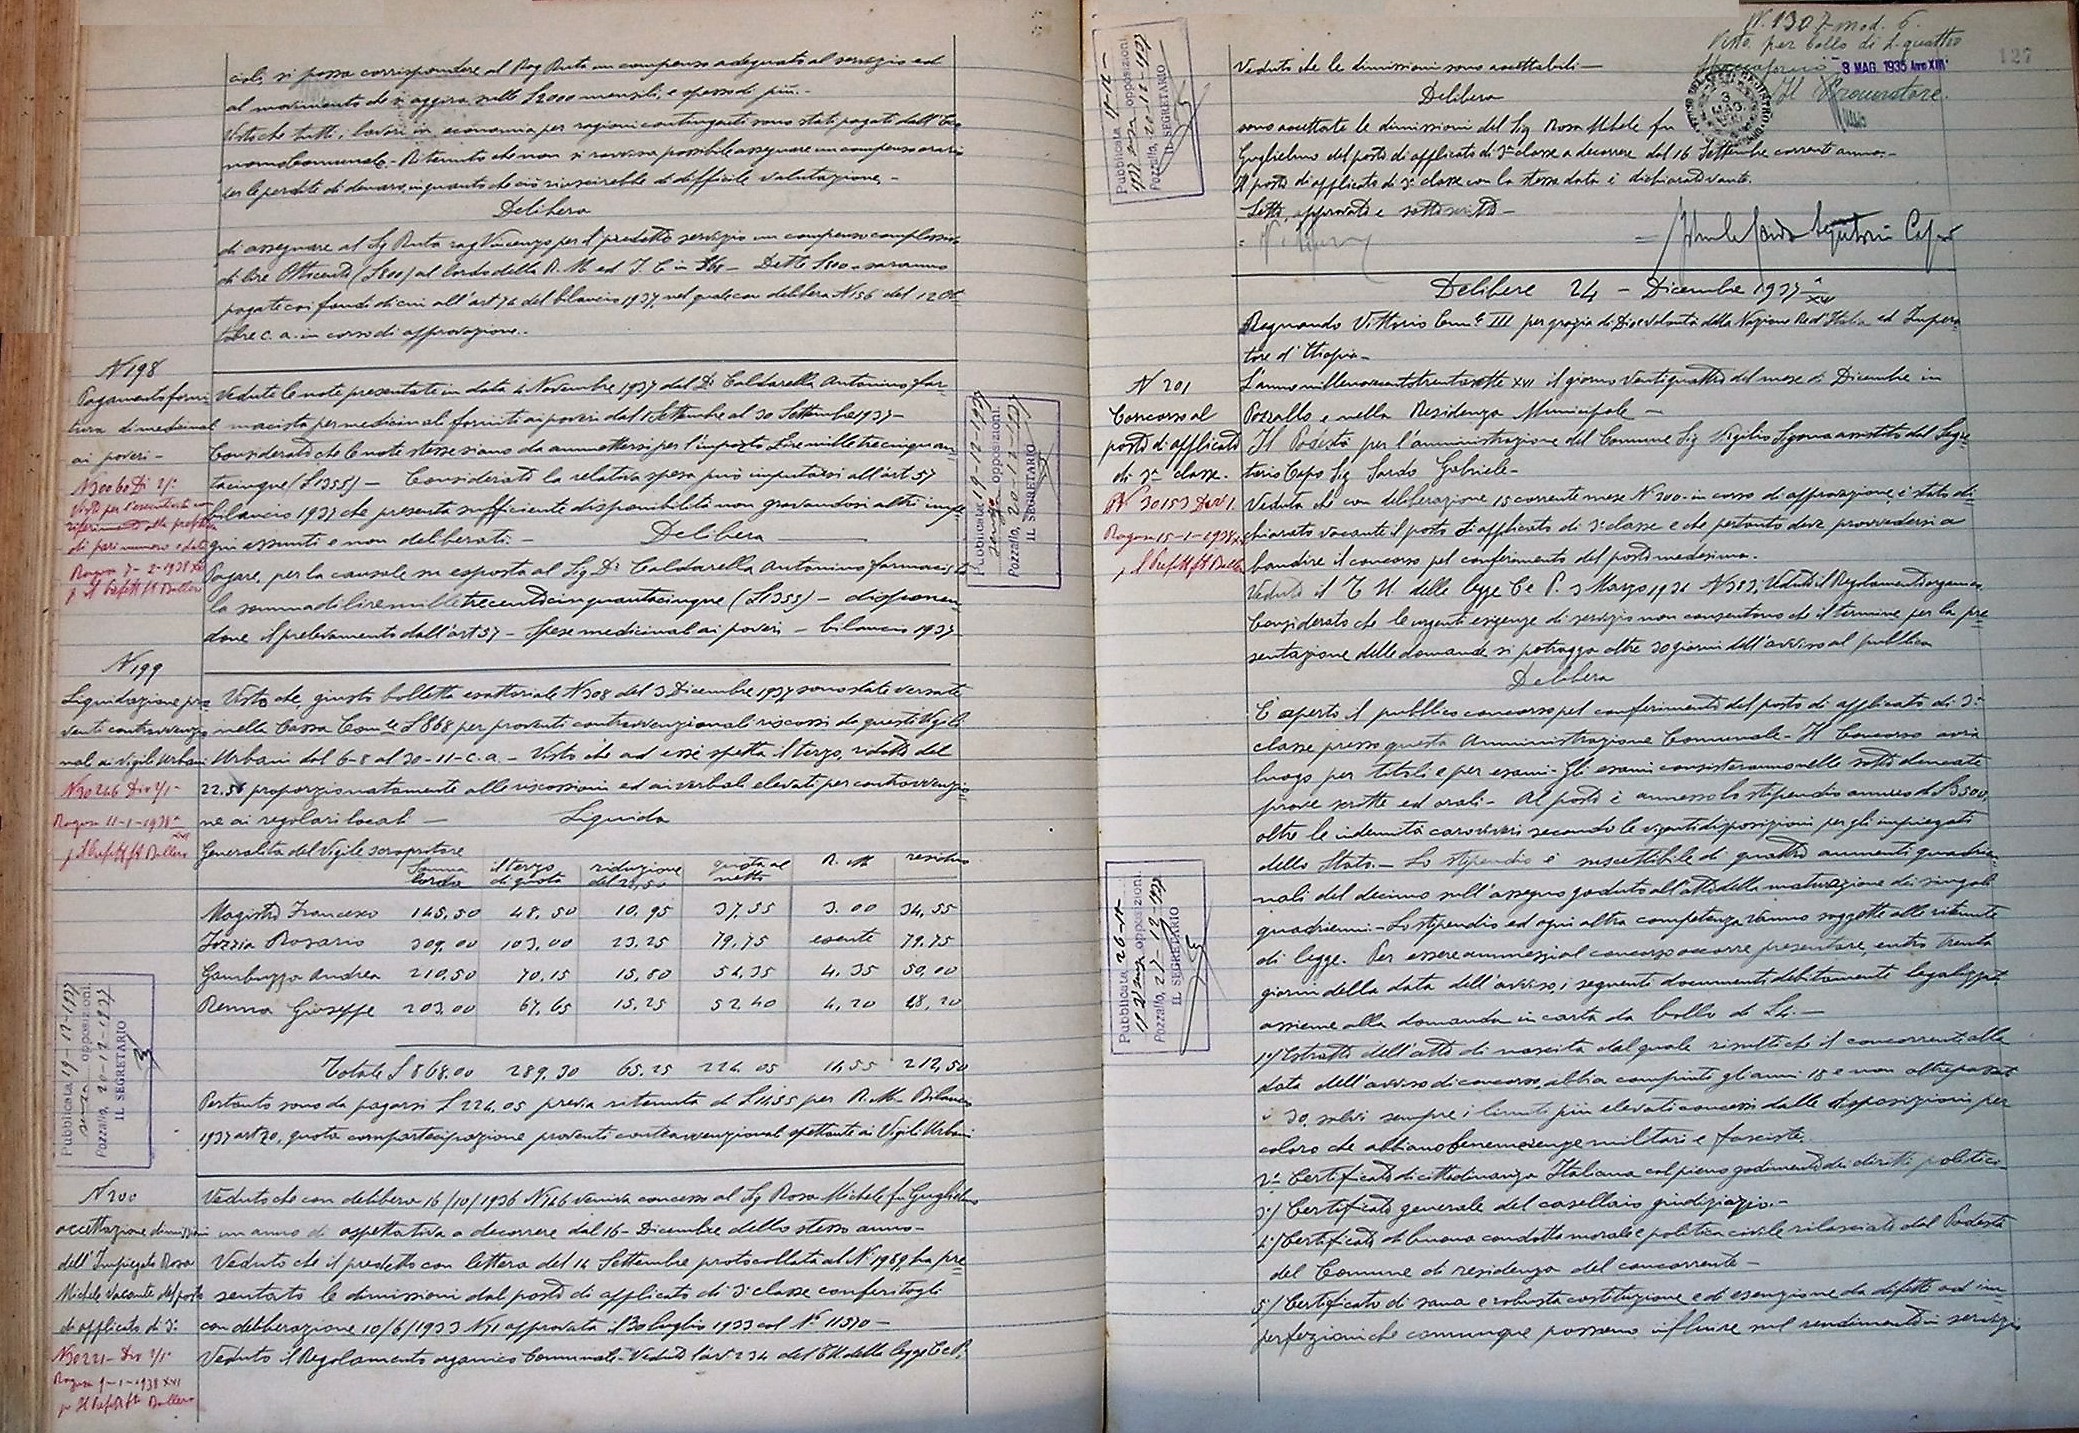 cioli, si possa corrispondere al Rag Ruta un compenso adeguato al servizio ed
al movimento che si aggira sulle £2000 mensili, e spesso di più.-
Visto che tutti i lavori in economia per ragioni contingenti sono stati pagati dall'Eco
nomo Comunale. Ritenuto che non si ravvisa possibile assegnare un compenso orario
per le perdite di denaro, inquanto che ciò riuscirebbe di difficile valutazione.-
Delibera
di assegnare al Sig Ruta rag Vincenzo per il predetto servizio un compenso complessivo
di lire Ottocento (£800) al lordo della R. M ed I. C in - Dette £800 saranno
pagate coi fondi di cui all'art 74 del bilancio 1937, nel quale con delibera N 156 del 12 Ot
tobre c. a. in corso di approvazione..
N 198
Pagamento forni
tura di medicinal
ai poveri -
N 30060 Di 2/1
Visto per l'esecutività con
riferimento alla prefettizia
di pari numero e data
Ragusa 7-2-1938 XVI
p Il Prefetto ft Ballero
Vedute le note presentate in data 4 Novembre 1937 dal Dr Caldarella Antonino far-
macista per medicinali forniti ai poveri dal 1 Settembre al 30 Settembre 1937 -
Considerato che le note stesse siano da ammettersi per l'importo Lire mille trecinquan
tacinque (£1355) - Considerato la relativa spesa può imputarsi all'art 57
bilancio 1937 che presenta sufficiente disponibilità non gravandosi altri impe
gni assunti e non deliberati. - Delibera
Pagare, per la causale su esposta al Sig Dr Caldarella Antonino farmacista
la somma di lire mille trecentocinquantacinque (£1355) - disponen
done il prelevamento dall'art 57 - Spese medicinali ai poveri - bilancio 1937
Pubblicata 19-12-1937
senza opposizioni.
Pozzallo, 20-12-1937
IL SEGRETARIO
N 199
Liquidazione pro
venti contravvenzio
nali ai Vigili Urbani
N 30246 Div 2/1-
Ragusa 11-1-1938
XVI
p Il Prefetto ft Ballero
Visto che, giusto bolletta esattoriale N 308 del 3 Dicembre 1937, sono state versate
nella Cassa Com.le £ 868 per proventi contravvenzionali riscossi da questi Vigili
Urbani dal 6-8 al 30-11-c.a. - Visto che ad essi spetta il terzo, ridotto del
22.56 proporzionatamente alle riscossioni ed ai verbali elevati per contravvenzio
ne ai regolari locali - Liquida
Generalità del Vigile scropritore Somma lorda il terzo di quota riduzione del 22,50 quota al netto R. M residuo
Magistro Francesco 145,50 48,50 10,95 37,55 3.00 34,55
Iozzia Rosario 309,00 103,00 23.25 79.75 esente 79.75
Gambuzza Andrea 210,50 70.15 15,80 54,35 4.35 50,00
Renna Giuseppe 203,00 67,65 15.25 52.40 4,20 48,20
Totale £ 868.00 289,30 65.25 224 05 11,55 212,50
Pertanto sono da pagarsi £ 224,05 previa ritenuta di £ 11,55 per R. M - Bilancio
1937 art 20, quota compartecipazione proventi contravvenzionali spettante ai Vigili Urbani
Pubblicata 19-12-1937
senza opposizioni.
Pozzallo, 20-12-1937
IL SEGRETARIO
N 200
accettazione dimissioni
dell'Impiegato Rosa
Michele Vacante del posto
di applicato di 3ª
N 30221 - Div 2/1ª
Ragusa 9-1-1938 XVI
p Il Prefetto ft Ballero
Veduto che con delibera 16/10/1936 N 146 veniva concesso al Sig Rosa Michele fu Guglielmo
un anno di aspettativa a decorrere dal 16 - Dicembre dello stesso anno -
Veduto che il predetto con lettera del 14 Settembre protocollata al N. 1989 ha pre
sentato le dimissioni dal posto di applicato di 3ª classe conferitogli
con deliberazione 10/6/1933 N 71 approvata il 30 luglio 1933 col N° 11570 -
Veduto il Regolamento organico Comunale - Veduto l'art 234 del T.U della legge C e P.
N. 1307 mod. 6.
Visto per bollo di L. quattro
127
3 MAG. 1935 Anno XIII
Il Procuratore
Veduto che le dimissioni sono accettabili -
Delibera
sono accettate le dimissioni del Sig Rosa Michele fu
Guglielmo del posto di applicato di 3ª classe a decorrere dal 16 Settembre corrente anno.-
Il posto di applicato di 3ª classe con la stessa data è dichiarato vacante.
Letto, approvato e sottoscritto -
Pubblicata 19-12-
1937 senza opposizioni.
Pozzallo, 20-12-1937
IL SEGRETARIO
Delibere 24 - Dicembre 1937
XVI
Regnando Vittorio Emn.le III per grazia di Dio e Volontà della Nazione Re d'Italia ed Impera
tore d'Etiopia -
N 201
Concorso al
posto di applicato
di 3ª classe.
N. 30153 Div 2/1.
Ragusa 15-1-1938 XVI
p Il Prefetto ft Ballero
L'anno millenovecentotrentasette XVI il giorno Ventiquattro del mese di Dicembre in
Pozzallo e nella Residenza Municipale -
Il Podestà per l'amministrazione del Comune Sig Vigilio Sigona assistito dal Segre
tario Capo Sig Sardo Gabriele -
Veduto che con deliberazione 15 corrente mese N 200 - in corso di approvazione è stato di
chiarato vacante il posto di applicato di 3ª classe e che pertanto deve provvedersi a
bandire il concorso pel conferimento del posto medesimo.
Veduto il T U delle legge C e P. 3 Marzo 1934 N 383, Veduto il Regolamento organico
Considerato che le urgenti esigenze di servizio non consentono che il termine per la pre
sentazione delle domande si potragga oltre 30 giorni dell'avviso al pubblico
Delibera
È aperto il pubblico concorso pel conferimento del posto di applicato di 3ª
classe presso questa Amministrazione Comunale - Il Concorso avrà
luogo per titoli e per esami - Gli esami consisteranno nelle sotto elencate
prove scritte ed orali - Al posto è annesso lo stipendio annuo di £ 3500,
oltre le indennità caroviveri secondo le vigenti disposizioni per gli impiegati
dello Stato. - Lo stipendio è suscettibile di quattro aumenti quadrien
nali del decimo sull'assegno goduto all'atto della maturazione dei singoli
quadrienni - Lo stipendio ed ogni altra competenza vanno soggette alle ritenute
di legge. Per essere ammessi al concorso occorre presentare, entro trenta
giorni della data dell'avviso, i seguenti documenti debitamente legalizzati
assieme alla domanda in carta da bollo di £4. -
1°/ Estratto dell'atto di nascita dal quale risulti che il concorrente alla
data dell'avviso di concorso, abbia compiuto gli anni 18 e non oltrepassati
i 30, salvi sempre i limiti più elevati concessi dalle disposizioni per
coloro che abbiano benemerenze militari e fasciste.
2°- Certificato di cittadinanza Italiana col pieno godimento dei diritti politici.
3°/ Certificato generale del casellario giudiziario.-
4°/ Certificato di buona condotta morale e politica civile rilasciato dal Podestà
del Comune di residenza del concorrente -
5°/ Certificato di sana e robusta costituzione e di esenzione da difetti ed im
perfezioni che comunque possano influire sul rendimento in servizio
Pubblicata 26-12-
1937 senza opposizioni.
Pozzallo, 27-12-1937
IL SEGRETARIO